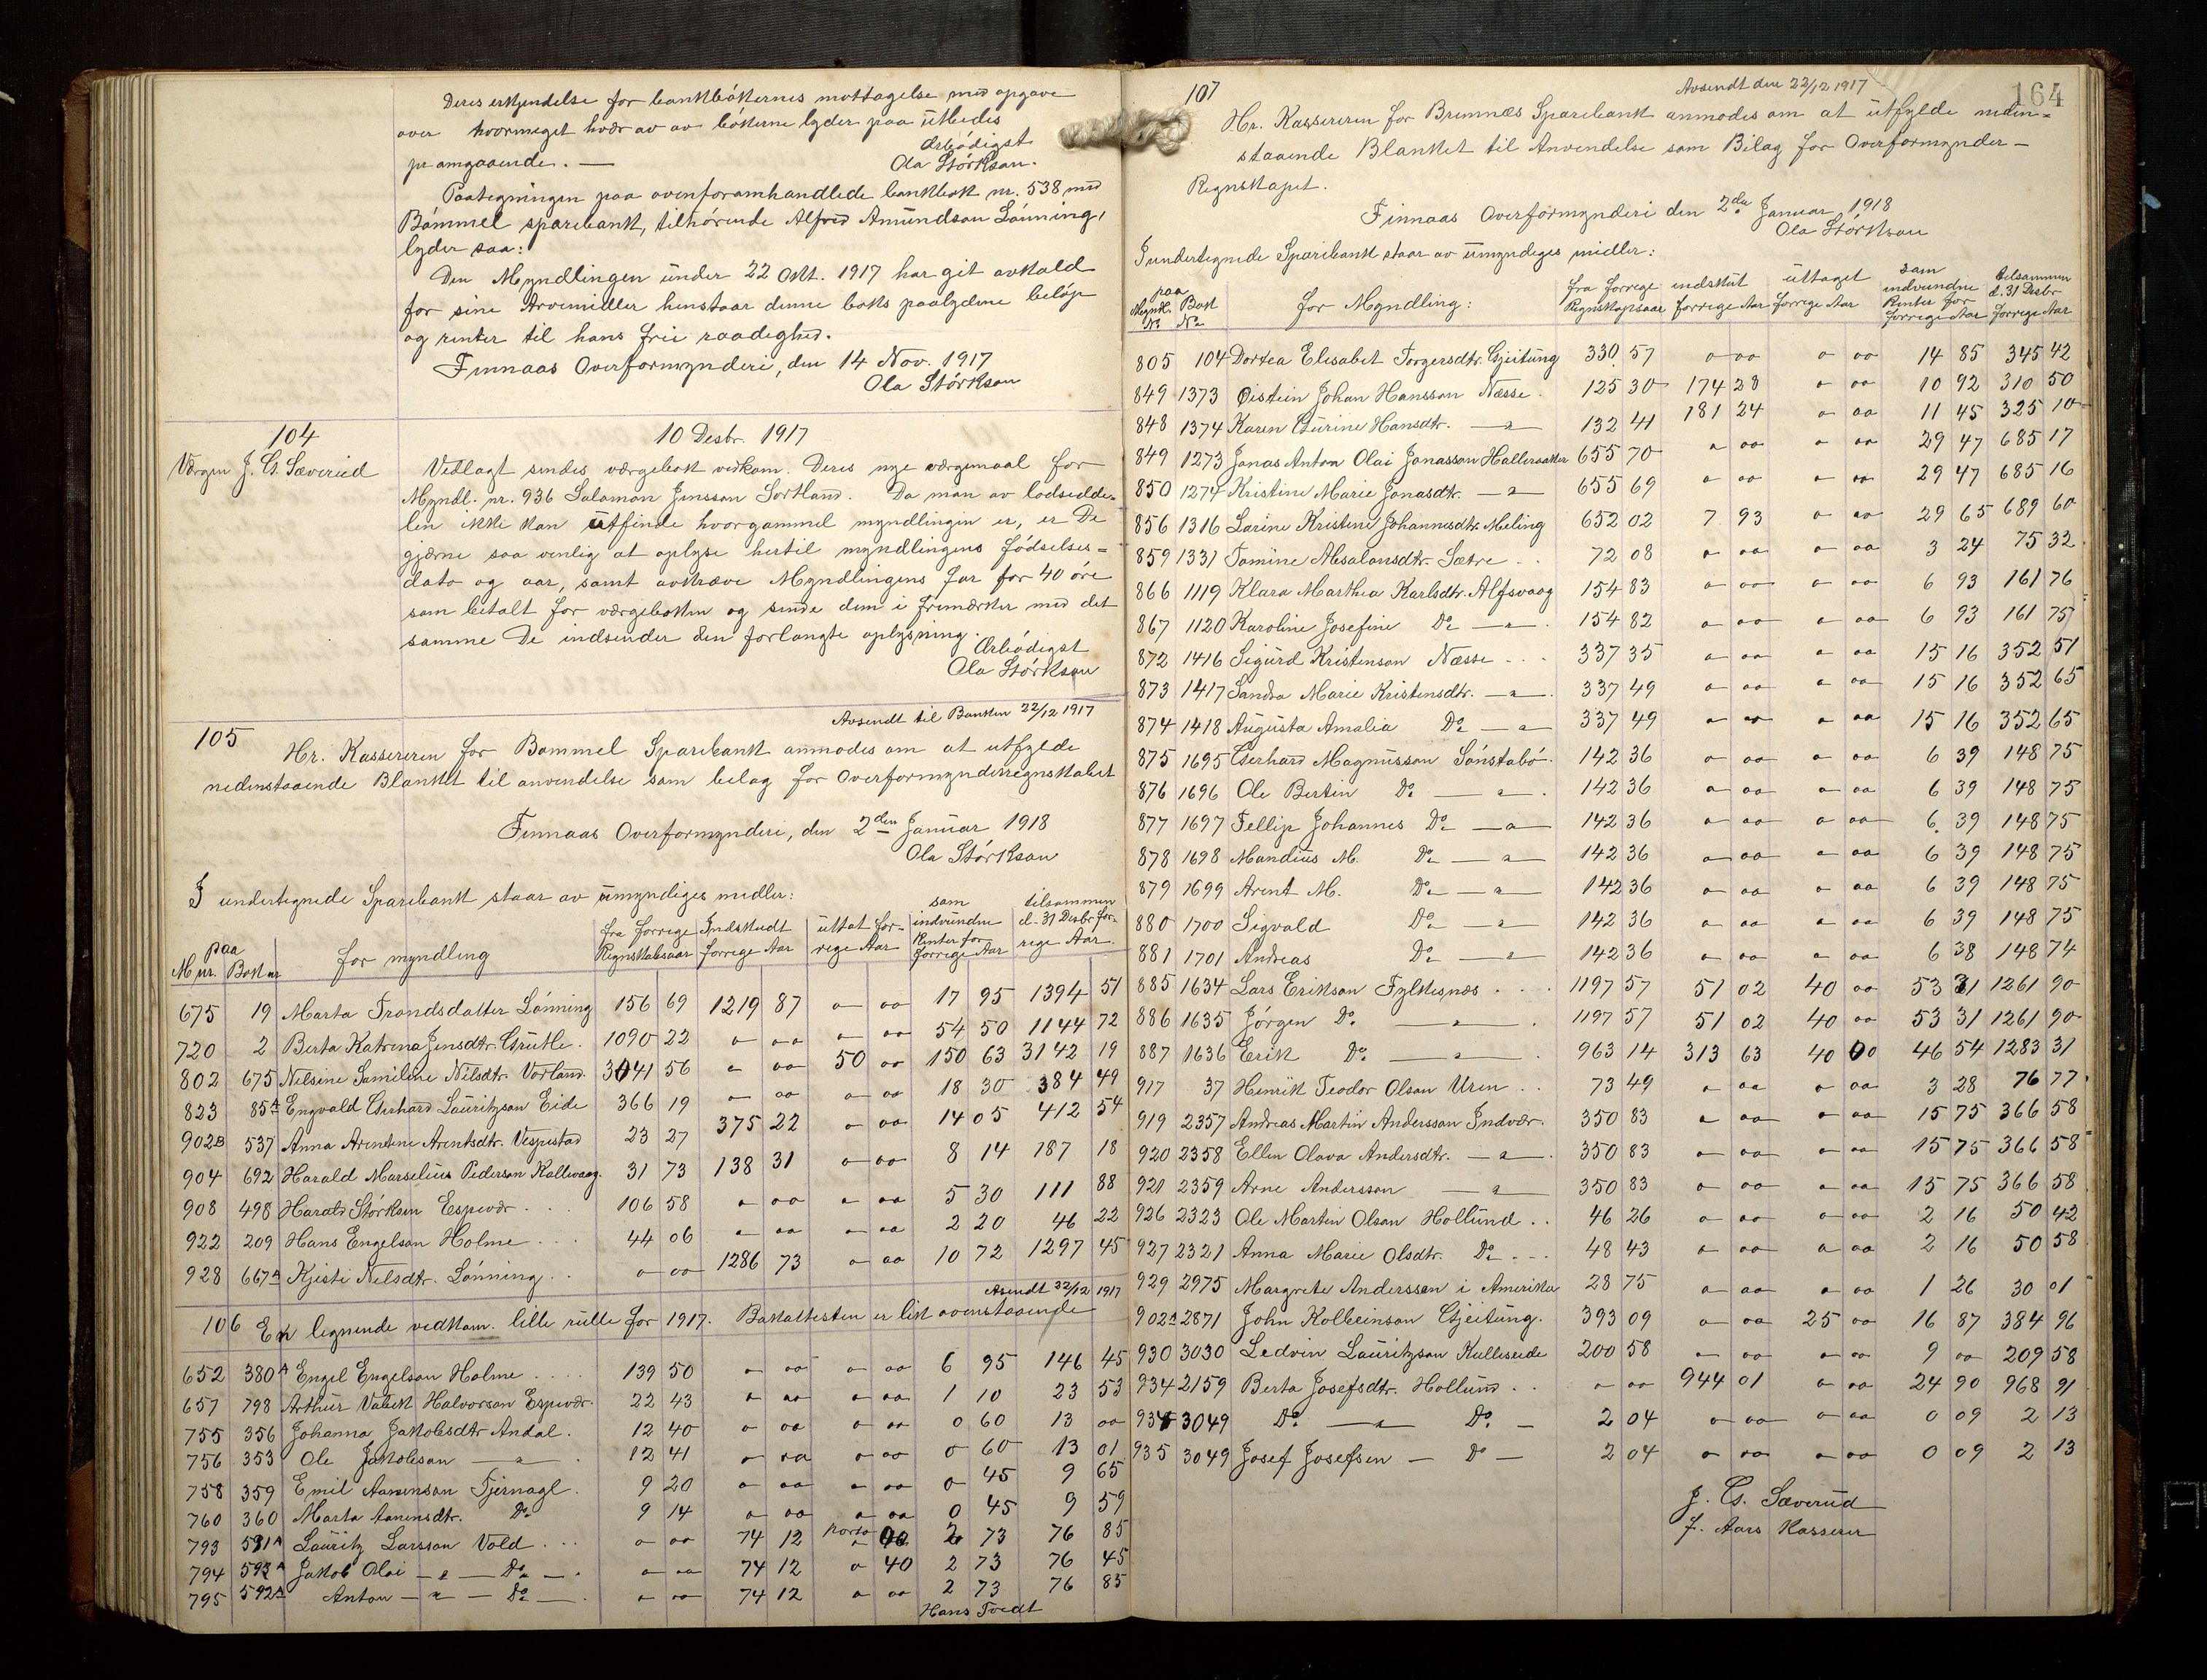 Deres erkjendelse for bankbøkernes mottagelse med opgave
over hvormeget hvær av av bøkerne lyder paa utbedes
pr omgaaende. —
Ærbødigst
Ola Størkson.
Paategningen paa ovenforomhandlede bankbok nr. 538 med
Bømmel sparebank, tilhørende Alfred Amundson Lønning,
lyder saa:
Den Myndlingen under 22 Okt. 1917 har git avkald
for sine Arvemidler henstaar denne boks paalydene beløp
og renter til hans frie raadighed.
Finnaas Overformynderi, den 14 Nov. 1917
Ola Størkson
104
Værgen J. G. Sæverud
10 Desbr. 1917
Vedlagt sendes værgebok vedkom. Deres nye værgemaal for
Myndl. nr. 936 Salamon Jensson Sortland. Da man av lodsedde-
len ikke kan utfinde hvorgammel myndlingen er, er De
gjærne saa venlig at oplyse hertil myndlingens fødselses=
dato og aar, samt avkræve Myndlingens far for 40 øre
som betalt for værgeboken og sende dem i frimærker med det
samme De indsender den forlangte oplysning.
Ærbødigst
Ola Størkson
Avsendt til Banken 22/12 1917
105
Hr. Kassereren for Bømmel Sparebank anmodes om at utfylde
nedenstaaende Blanket til anvendelse som belag for Overformynderregnskabet
Finnaas Overformynderi, den 2den Januar 1918
Ola Størkson
I undertegnede Sparebank staar av umyndiges midler:
paa M nr. Bok nr | for myndling | fra forrige Regnskabsaar | Indskudt forrige Aar | uttat forrige Aar | som indvundne Renter for forrige Aar | tilsammen d. 31 Desbr forrige Aar.
675 19 Marta Trondsdatter Lønning 156 69 1219 87 o oo 17 95 1394 51
720 2 Berta Katrina Jensdtr. Grutle. 1090 22 o oo o oo 54 50 1144 72
802 675 Nilsine Samiline Nilsdtr. Vorland. 3041 56 o oo 50 oo 150 63 3142 19
823 85A Engvald Gerhard Lauritzson Eide 366 19 o oo o oo 18 30 384 49
902B 537 Anna Arentine Arentsdtr. Vespestad 23 27 375 22 o oo 14 05 412 54
904 692 Harald Marselius Pederson Kallevaag. 31 73 138 31 o oo 8 14 187 18
908 498 Harald Størksen Espevær . . . 106 58 o oo o oo 5 30 111 88
922 209 Hans Engelson Holme . . . 44 06 o oo o oo 2 20 46 22
928 667A Kjisti Nilsdtr. Lønning . . o oo 1286 73 o oo 10 72 1297 45
Avsendt 22/12 1917
106 En lignende vedkom. lille rulle for 1917. Bokattesten er lik ovenstaaende
652 380A Engel Engelson Holme . . . . 139 50 o oo o oo 6 95 146 45
657 798 Arthur Valek Halvorson Espevær. 22 43 o oo o oo 1 10 23 53
755 356 Johanna Jakobsdtr Andal. 12 40 o oo o oo 0 60 13 oo
756 353 Ole Jakobson — " — . 12 41 o oo o oo 0 60 13 01
758 359 Emil Aanenson Tjernagl. 9 20 o oo o oo 0 45 9 65
760 360 Marta Aanensdtr. Do 9 14 o oo o oo 0 45 9 59
793 591A Lauritz Larsson Vold . . . o oo 74 12 porto o 40 2 73 76 85
794 592A Jakob Olai — " — Do — . o oo 74 12 o 40 2 73 76 45
795 592A Anton — " — Do — . o oo 74 12 o oo 2 73 76 85
Hans Tvedt
164
Avsendt den 22/12 1917
107
Hr. Kassereren for Bremnæs Sparebank anmodes om at utfylde neden=
staaende Blanket til Anvendelse som Bilag for Overformynder-
Regnskapet.
Finnaas Overformynderi den 2den Januar 1918
Ola Størkson
I undertegnede Sparebank staar av umyndiges midler:
paa Myndl. No Bok No | for Myndling: | fra forrige Regnskapsaar | indskut forrige Aar | uttaget forrige Aar | som indvundne Renter for forrige Aar | tilsammen d. 31 Desbr forrige Aar
805 104 Dortea Elisabet Torgersdtr. Gjeitung 330 57 o oo o oo 14 85 345 42
849 1373 Øistein Johan Hansson Næsse. 125 30 174 28 o oo 10 92 310 50
848 1374 Karen Gurine Hansdtr. — " — 132 41 181 24 o oo 11 45 325 10
849 1273 Jonas Anton Olai Jonasson Halleraaker 655 70 o oo o oo 29 47 685 17
850 1274 Kristine Marie Jonasdtr. — " — 655 69 o oo o oo 29 47 685 16
856 1316 Larine Kristine Johannesdtr. Meling 652 02 7 93 o oo 29 65 689 60
859 1331 Tomine Absalonsdtr. Sætre . . 72 08 o oo o oo 3 24 75 32
866 1119 Klara Marthea Karlsdtr. Alfsvaag 154 83 o oo o oo 6 93 161 76
867 1120 Karoline Josefine Do — " — . 154 82 o oo o oo 6 93 161 75
872 1416 Sigurd Kristenson Næsse . . . 337 35 o oo o oo 15 16 352 51
873 1417 Sandra Marie Kristensdtr. — " — . 337 49 o oo o oo 15 16 352 65
874 1418 Augusta Amalia Do — " — 337 49 o oo o oo 15 16 352 65
875 1695 Gerhard Magnusson Sønstabø. 142 36 o oo o oo 6 39 148 75
876 1696 Ole Bertin Do — " — . 142 36 o oo o oo 6 39 148 75
877 1697 Fellip Johannes Do — " — 142 36 o oo o oo 6 39 148 75
878 1698 Mandius M. Do — " — 142 36 o oo o oo 6 39 148 75
879 1699 Arent M. Do — " — 142 36 o oo o oo 6 39 148 75
880 1700 Sigvald Do — " — 142 36 o oo o oo 6 39 148 75
881 1701 Andreas Do — " — 142 36 o oo o oo 6 38 148 74
885 1634 Lars Erikson Fylkesnæs . . . 1197 57 51 02 40 oo 53 31 1261 90
886 1635 Jørgen Do. — " — . 1197 57 51 02 40 oo 53 31 1261 90
887 1636 Erik Do — " — . 963 14 313 63 40 00 46 54 1283 31
917 37 Henrik Teodor Olson Uren . . 73 49 o oo o oo 3 28 76 77
919 2357 Andreas Martin Andersson Indvær. 350 83 o oo o oo 15 75 366 58
920 2358 Ellen Olava Andersdtr. — " — . 350 83 o oo o oo 15 75 366 58
921 2359 Arne Andersson — " — 350 83 o oo o oo 15 75 366 58
926 2323 Ole Martin Olson Hollund . . 46 26 o oo o oo 2 16 50 42
927 2321 Anna Marie Olsdtr. Do . . . 48 43 o oo o oo 2 16 50 58
929 2975 Margrete Anderssen i Amerika 28 75 o oo o oo 1 26 30 01
902A 2871 John Kolbeinson Gjeitung. 393 09 o oo 25 oo 16 87 384 96
930 3030 Ledvin Lauritzson Kulleseide 200 58 o oo o oo 9 oo 209 58
934 2159 Berta Josefsdtr. Hollund . . o oo 944 01 o oo 24 90 968 91
934 3049 Do — " — Do. — 2 04 o oo o oo 0 09 2 13
935 3049 Josef Josefsen — Do — 2 04 o oo o oo 0 09 2 13
J. G. Sæverud
f. Aars Kasserer